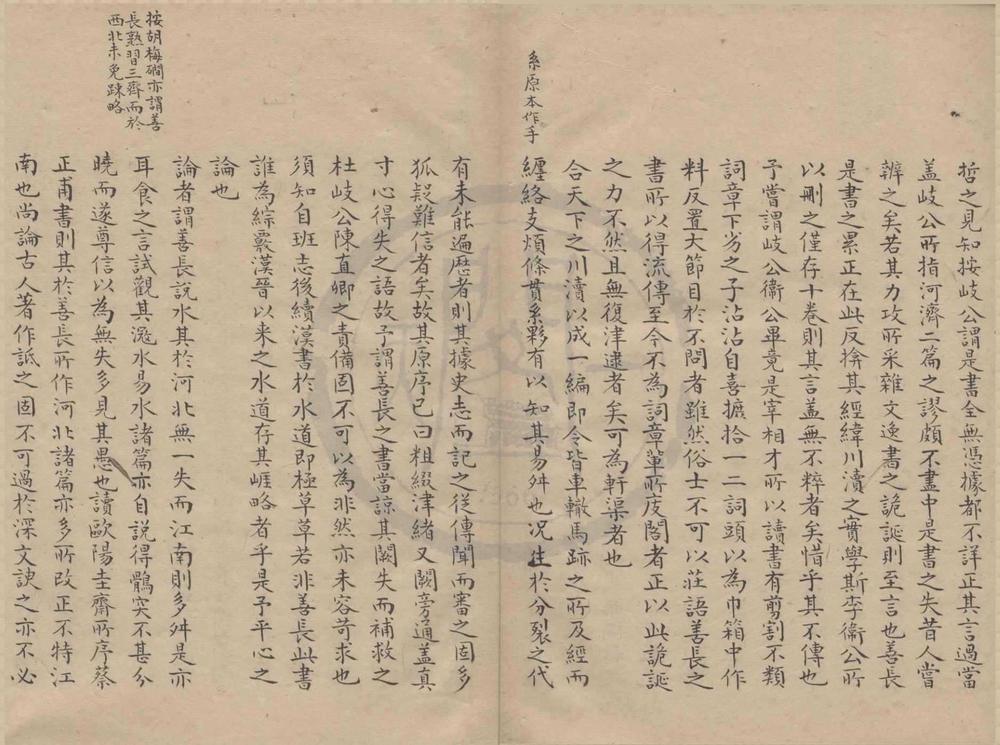 哲之見知按岐公謂是書全無憑據都不詳正其言過當
蓋岐公所指河濟二篇之謬頗不盡中是書之失昔人嘗
辨之矣若其力攻所采雜文逸書之詭誕則至言也善長
是書之累正在此反揜其經緯川瀆之實學斯李衞公所
以刪之僅存十卷則其言蓋無不粹者矣惜乎其不傳也
予嘗謂岐公衞公畢竟是宰相才所以讀書有剪割不類
詞章下劣之子沾沾自喜摭拾一二詞頭以為巾箱中作
料反置大節目於不問者雖然俗士不可以莊語善長之
書所以得流傳至今不為詞章軰所庋閣者正以此詭誕
之力不然且無復津逮者矣可為軒渠者也
合天下之川瀆以成一編即令皆車轍馬跡之所及經而
系原本作手
纏絡支煩條貫系夥有以知其易舛也况生於分裂之代
有未能遍歷者則其據史志而記之從傳聞而審之固多
狐疑難信者矣故其原序已曰粗綴津緒又闕旁通蓋真
寸心得失之語故予謂善長之書當諒其闕失而補救之
杜岐公陳直卿之責備固不可以為非然亦未容苛求也
須知自班志後續漢書於水道即極草草若非善長此書
誰為綜覈漢晉以来之水道存其崕略者乎是予平心之
論也
論者謂善長說水其於河北無一失而江南則多舛是亦
耳食之言試觀其㶟水易水諸篇亦自説得鶻突不甚分
曉而遂尊信以為無失多見其愚也讀歐陽圭齋所序蔡
按胡梅磵亦謂善
長熟習三齊而於
西北未免踈略
正甫書則其於善長所作河北諸篇亦多所改正不特江
南也尚論古人著作詆之固不可過於深文諛之亦不必